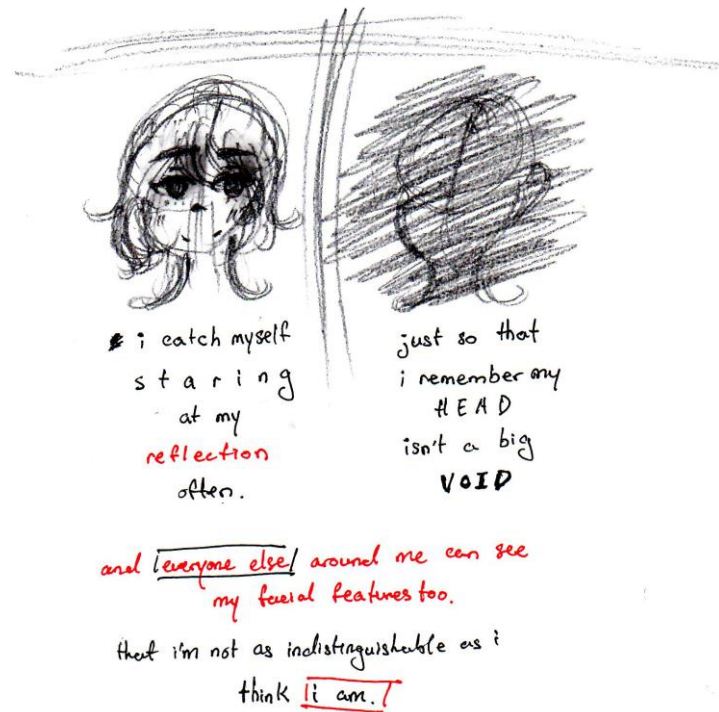 i catch myself
staring
at my
reflection
often.
just so that
i remember my
HEAD
isn't a big
VOID
and everyone else around me can see
my facial features too.
that i'm not as indistinguishable as i
think i am.